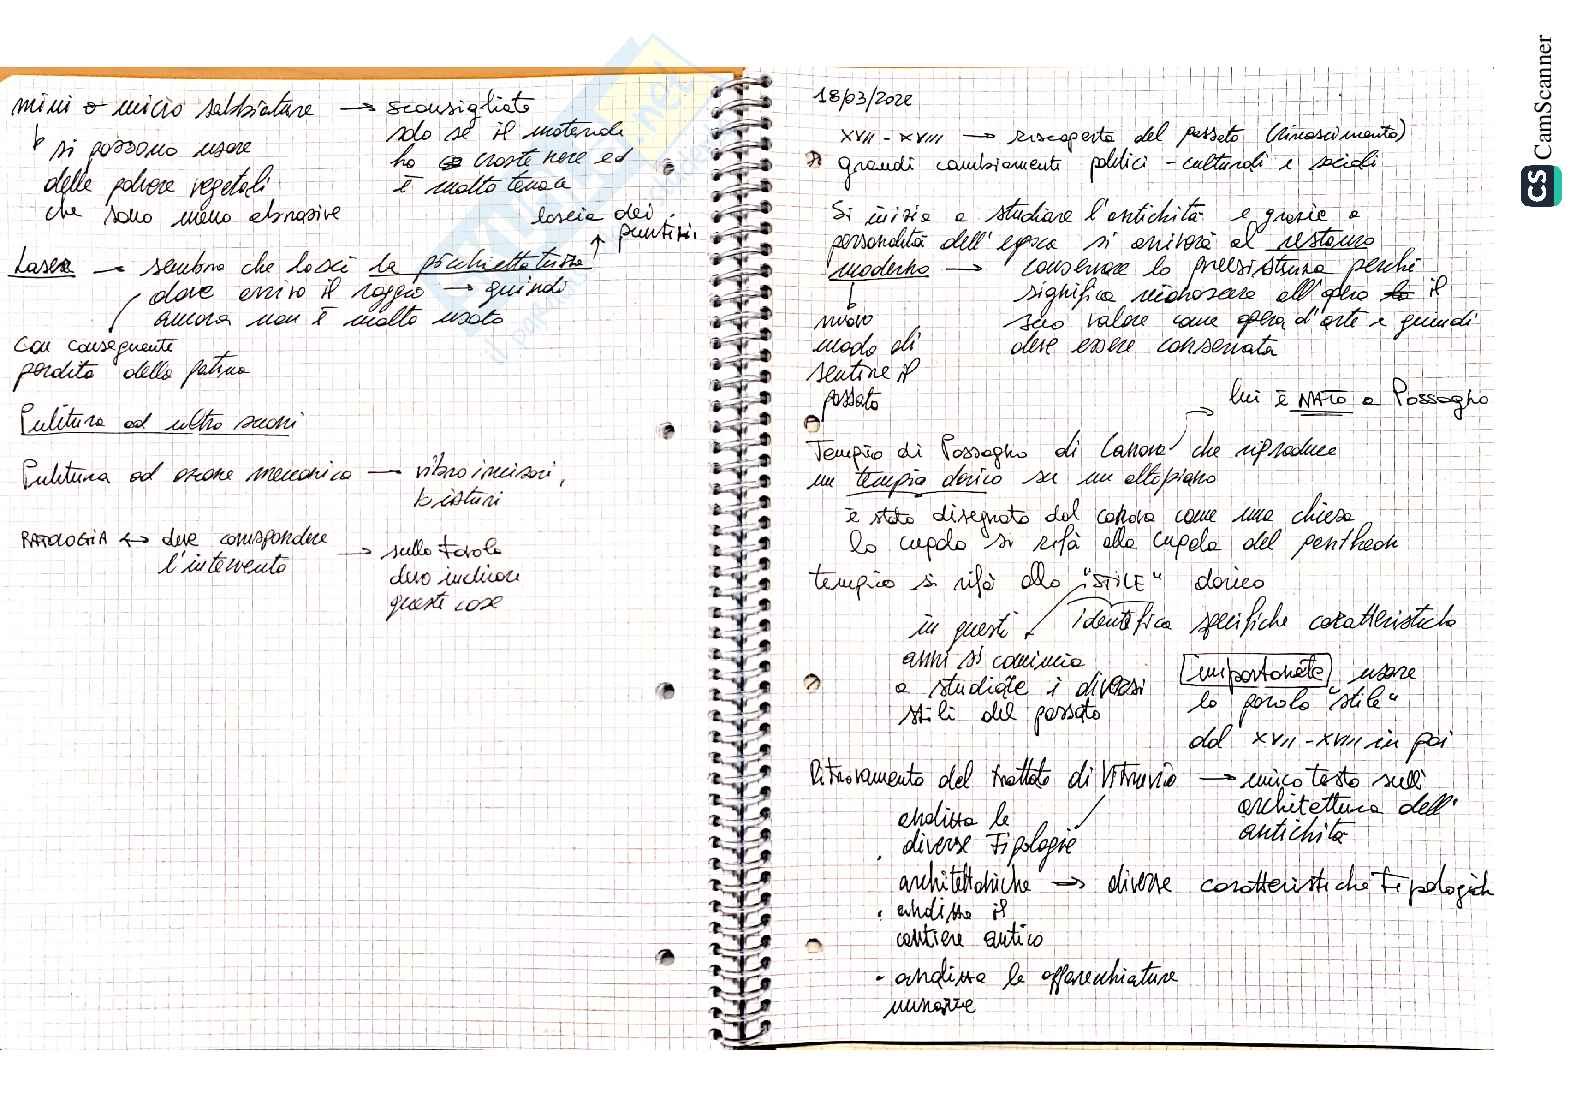 mini o micro sabbiature → sconsigliato
solo se il materiale
ha croste nere ed
è molto tenace
si possono usare
delle polvere vegetali
che sono meno abrasive
lascia dei
puntini
Laser → sembra che lasci la picchiettatura
dove arriva il raggio → quindi
ancora non è molto usato
con conseguente
perdita della patina
Pulitura ad ultra suoni
Pulitura ad azione meccanica → vibro incisori,
bisturi
PATOLOGIA ↔ deve corrispondere
l'intervento
→ sulla tavola
devo indicare
queste cose
18/03/2022
XVII - XVIII → riscoperta del passato (rinascimento)
grandi cambiamenti politici - culturali e sociali
Si inizia a studiare l'antichità e grazie a
personalità dell'epoca si arriverà al restauro
moderno → conservare la preesistenza perché
significa riconoscere all'opera il
suo valore come opera d'arte e quindi
deve essere conservata
nuovo
modo di
sentire il
passato
lui è NATO a Possagno
Tempio di Possagno di Canova che riproduce
un tempio dorico su un altopiano
è stato disegnato dal canova come una chiesa
la cupola si rifà alla cupola del pantheon
tempio si rifà allo "STILE" dorico
identifica specifiche caratteristiche
in questi
anni si comincia
a studiare i diversi
stili del passato
importante usare
la parola "stile"
dal XVII - XVIII in poi
Ritrovamento del trattato di Vitruvio → unico testo sull'
architettura dell'
antichità
analizza le
diverse tipologie
architettoniche → diverse caratteristiche tipologich
· analizza il
cantiere antico
- analizza le apparecchiature
murarie
CS CamScanner